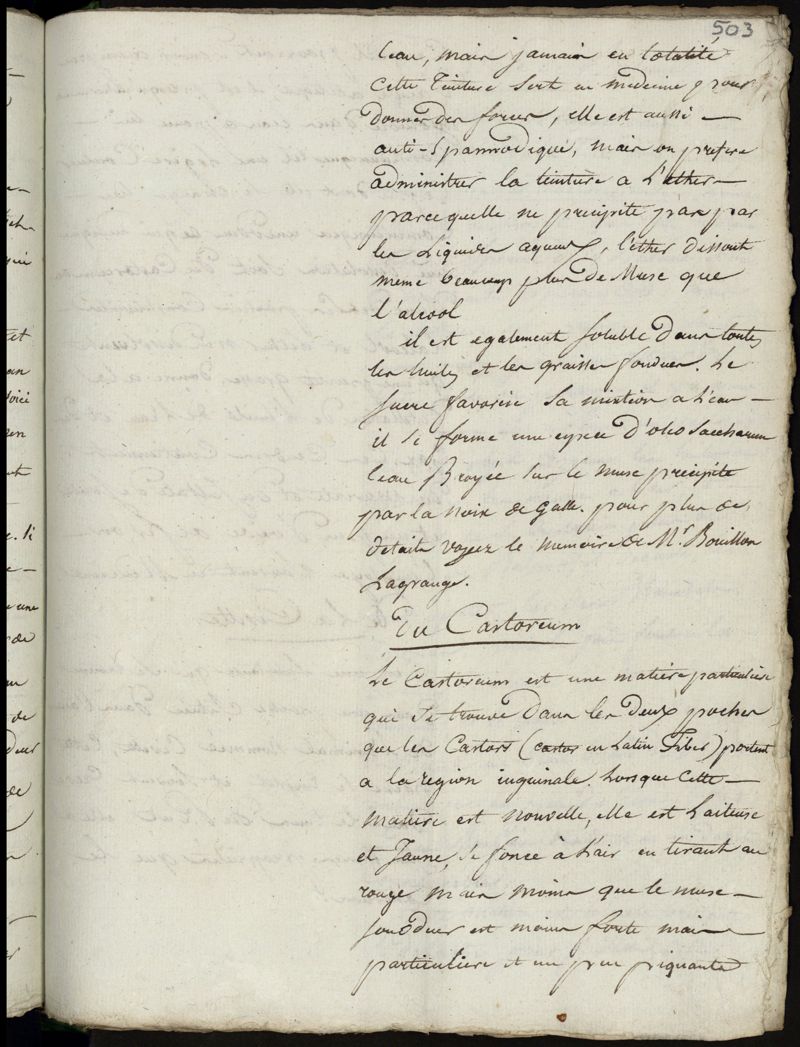 503
L'eau, mais jamais en totalité
cette teinture sert en medecine pour
donner des forces, elle est aussi —
anti-Spasmodique, mais on prefere
administrer la teinture a L'ether —
parcequelle ne precipite pas par
les Liquides aqueux, l'ether dissout
meme beaucoup plus de Musc que
l'alcool
il est egalement soluble Dans toutes
les huiles et les graisses fondues. Le
sucre favorise sa mixtion a L'eau —
il se forme une espece d'oleo saccharum
L'eau Broyée sur le musc precipite
par la noix de Galle. pour plus de
details voyez le memoire de Mr. Bouillon
Lagrange.
Du Castoreum
Le Castoreum est une matiere particuliere
qui se trouve Dans les Deux poches
que les Castors (castor en Latin Fiber) portent
a la region inguinale. Lorsque Cette —
matiere est nouvelle, elle est Laiteuse
et Jaune, Se fonce à L'air en tirant au
rouge mais moins que le musc —
son oDeur est moins forte mais —
particuliere et un peu piquante